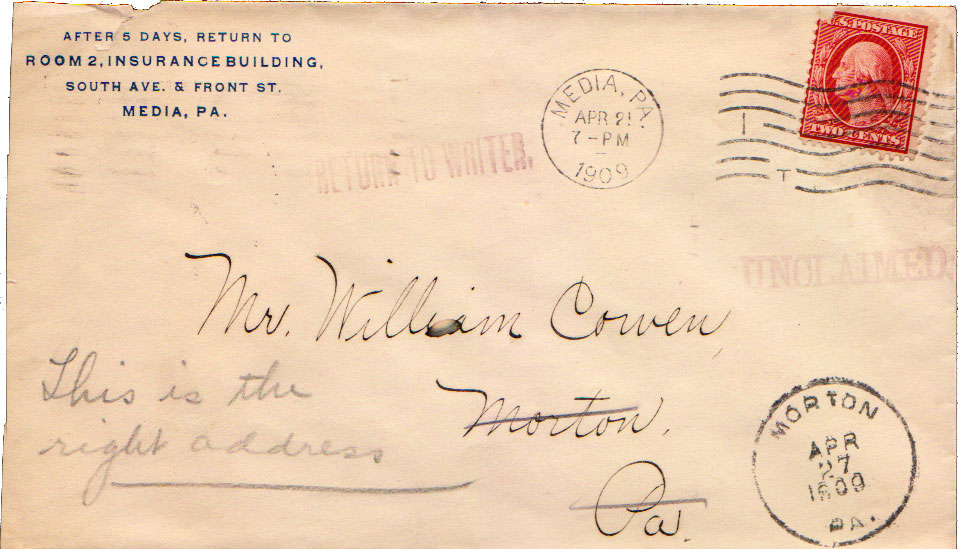 AFTER 5 DAYS, RETURN TO
ROOM 2, INSURANCE BUILDING,
SOUTH AVE. & FRONT ST.
MEDIA, PA.
MEDIA, PA.
APR 21
7-PM
1909
U.S. POSTAGE
TWO CENTS
T
RETURN TO WRITER.
UNCLAIMED.
Mr. William Cowen,
Morton.
Pa.
This is the
right address
MORTON
APR
27
1909
PA.